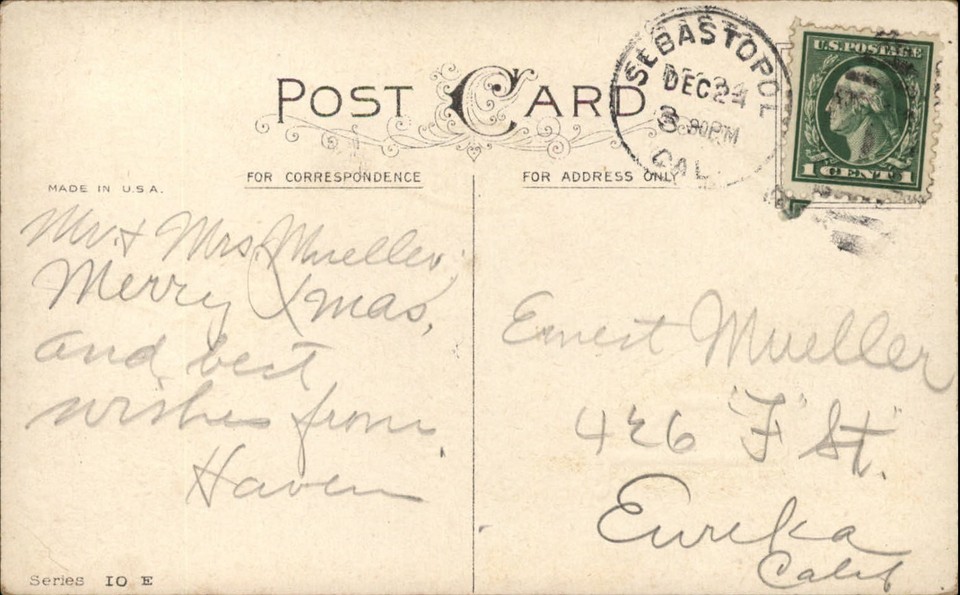 POST CARD
SEBASTOPOL
DEC 24
3 30PM
CAL
U.S. POSTAGE
1 CENT 1
MADE IN U.S.A.
FOR CORRESPONDENCE
FOR ADDRESS ONLY
Mr. & Mrs. Mueller,
Merry Xmas,
and best
wishes from,
Haven
Ernest Mueller
426 "F" St.
Eureka
Calif
Series 10 E